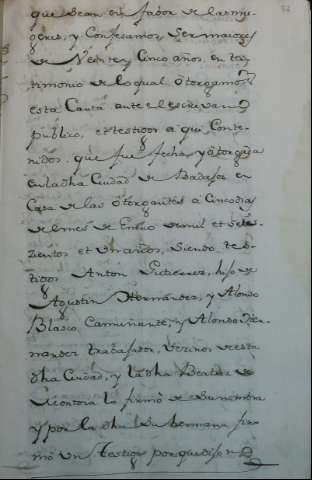 que sean en fabor de las mu-
geres, y Confesamos ser maiores
de Veinte y Cinco años, en tes-
timonio de lo qual otorgamos
esta Carta ante el escrivano
publico, et testigos a qui Conte-
nidos, que fue fecha, y otorgada
en la dha Ciudad de Badajoz en
Casa de las otorgantes a Cinco dias
del mes de Enero de mil et
zientos et años, siendo tes-
tigos Anton Gutierrez, hijo de
Agustin Hernandez, y Alonso
Blasco, Caminante, y Alonso Her-
nandez trabajador, Vezinos de esta
dha Ciudad, y la dha Beatriz de
la firmó de su nombre
y por la dha su hermana fir-
mó un testigo porque dijo no